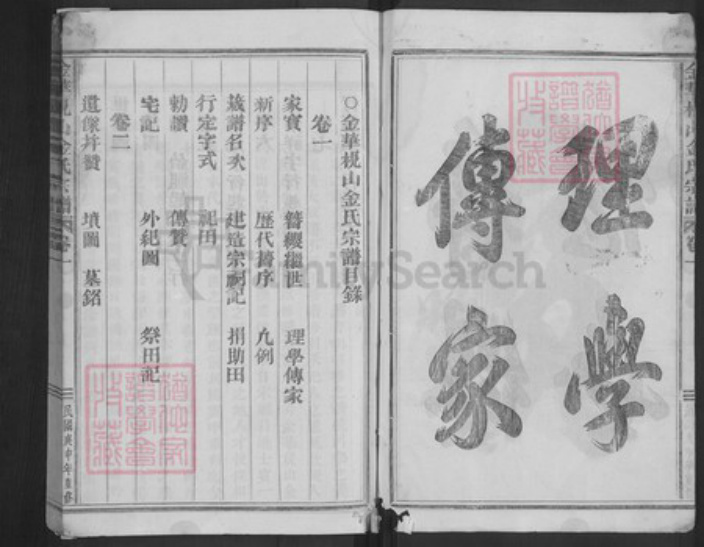 理學
傳家
○金華梘山金氏宗譜目錄
卷一
家寶 簪纓繼世 理學傳家
新序 歷代舊序 凡例
纂譜名次 建造宗祠記 捐助田
行定字式 祀田
勅讚 傳贊
宅記 外紀圖 祭田記
卷二
遺像并贊 墳圖 墓銘
民國庚申年重修
FamilySearch